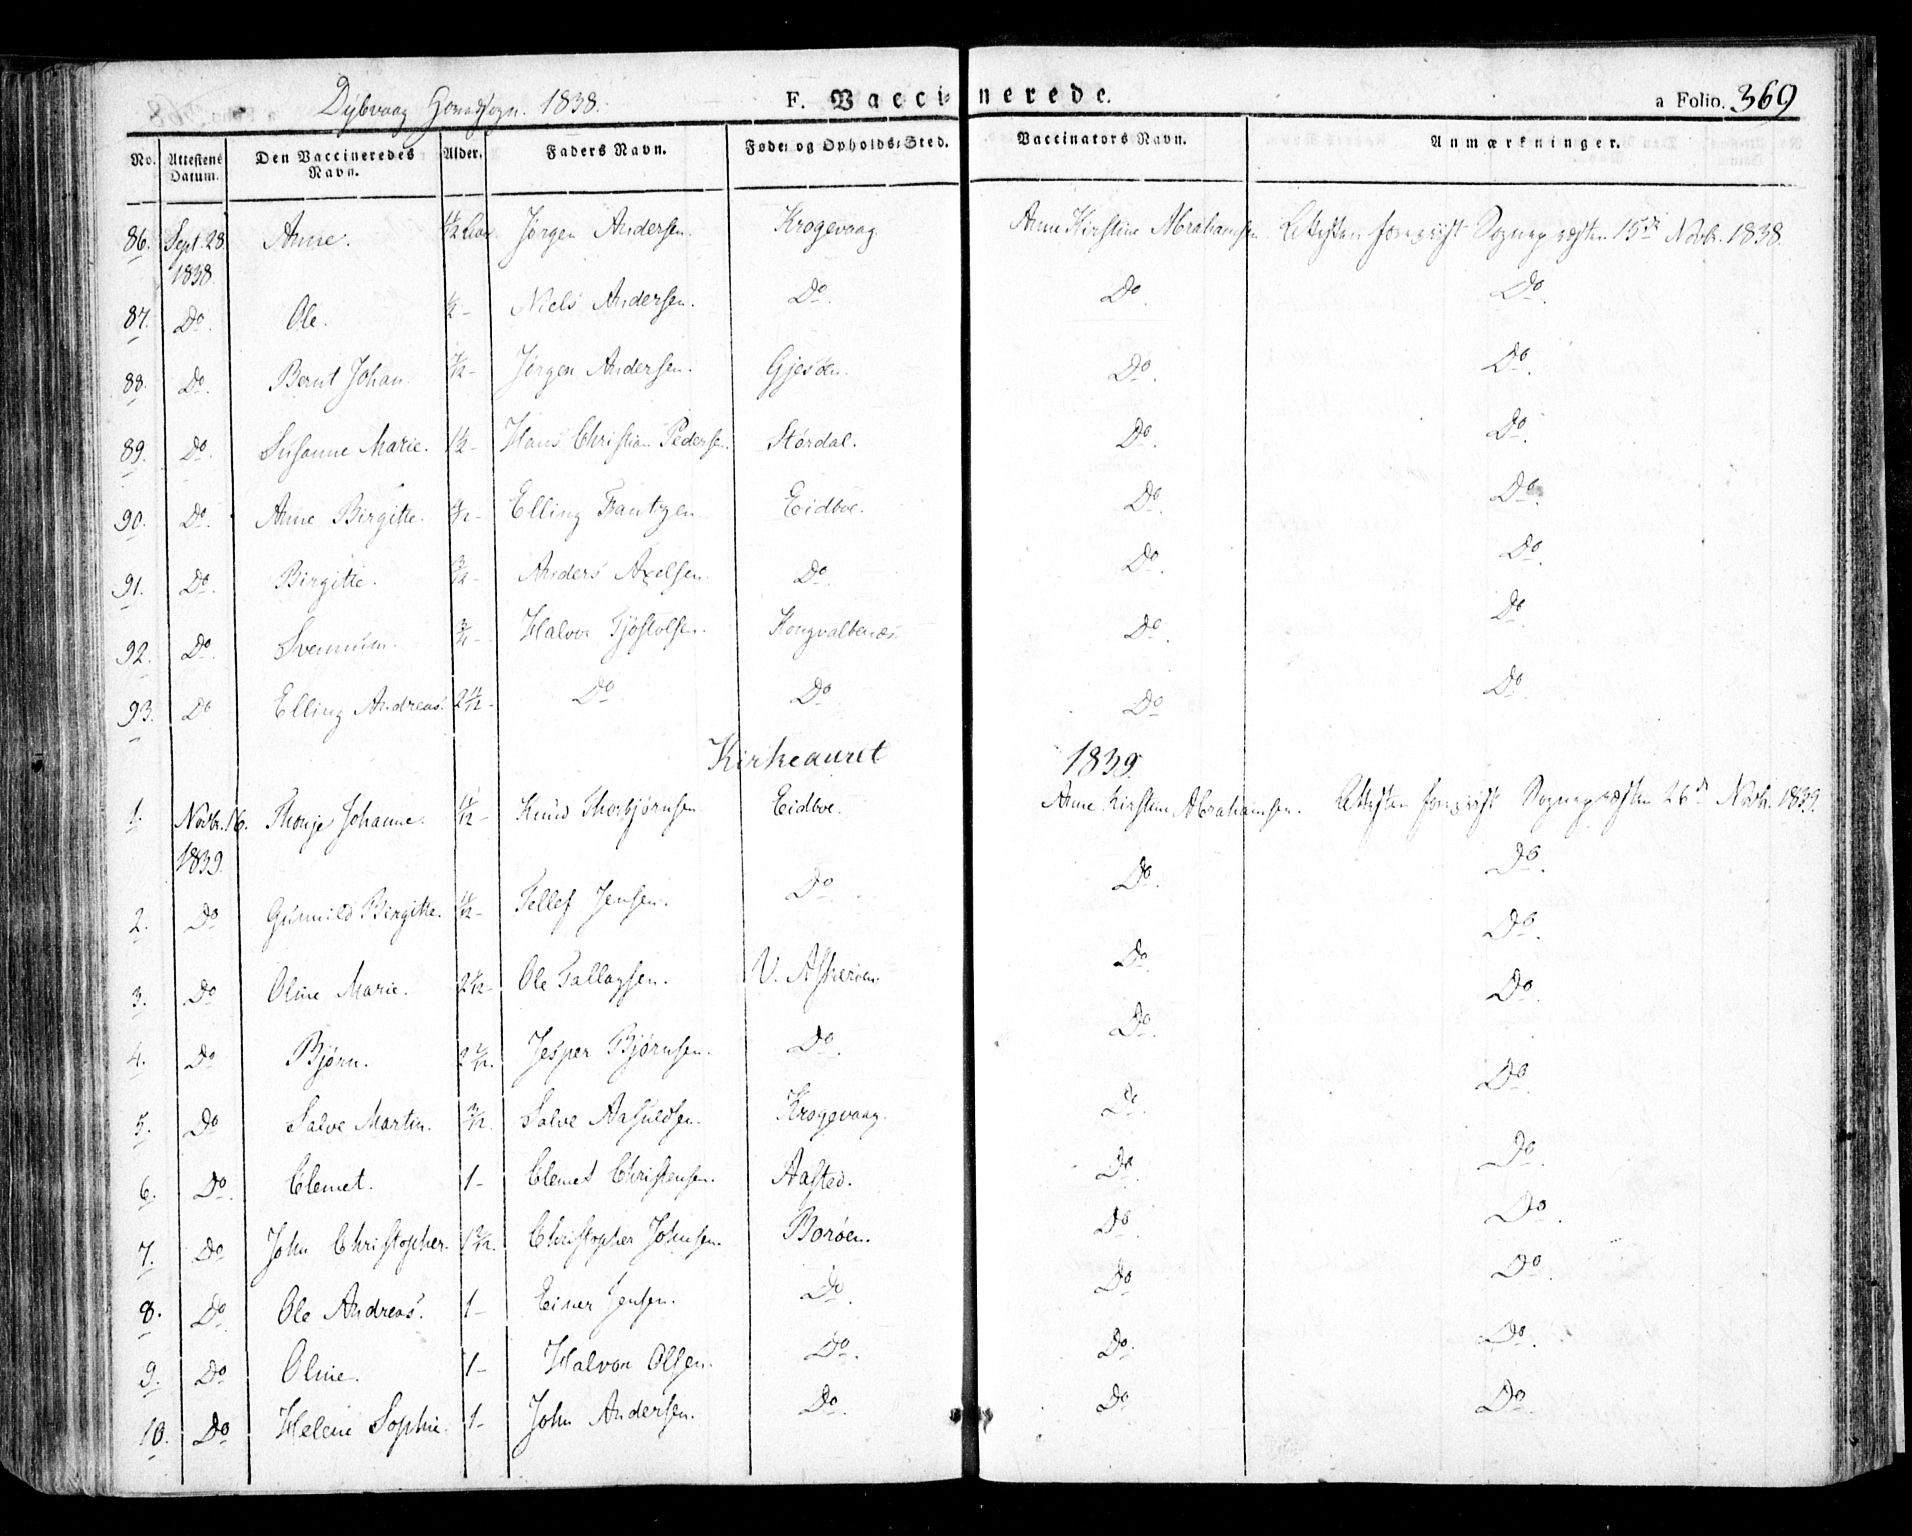 Dybvaag Hovedsogn. 1838. F. Vaccinerede. a Folio. 369
No. Attestens Datum. Den Vaccineredes Navn. Alder. Faders Navn. Føde- og Opholds-Sted. Vaccinators Navn. Anmærkninger.
86. Sept. 28 1838 Anne. Jørgen Andersen. Krogevaag Anne Kirstine Abrahamsen. Attesten forevist Sognepræsten 15de Novbr. 1838.
87. Do. Ole. Niels Andersen. Do. Do. Do.
88. Do. Bernt Johan. Jørgen Andersen. Gjesøen. Do. Do.
89. Do. Susanne Marie. Hans Christian Pedersen. Størdal. Do. Do.
90. Do. Anne Birgitte. Elling Frantzen. Eidboe. Do. Do.
91. Do. Birgitte. Anders Axelsen. Do. Do. Do.
92. Do. Halvor Tjøstolsen. Do. Do.
93. Do Elling Andreas. 2 11/12 - Do. Do Do Do.
Kirkeauret 1839.
1. Novbr. 16. 1839. Johanne. 11/12 - Knud Thorbjørnsen Eidboe. Anne Kirstine Abrahamsen. Attesten forevist Sognepræsten 26de Novbr. 1839.
2. Do Gunnild Birgitte. 11/12 - Tellef Jensen. Do. Do. Do.
3. Do Oline Marie. Ole Tallagsen. V. Askerøen. Do. Do.
4. Do Bjørn. Jesper Bjørnsen. Do. Do. Do.
5. Do Salve Martin. Salve Aasuldsen. Krogevaag. Do. Do.
6. Do. Clemet. 1 - Clemet Christensen. Aasted. Do. Do.
7. Do John Christopher. Christopher Johnsen. Borøen. Do. Do.
8. Do. Ole Andreas. 1 - Einer Jensen. Do. Do Do.
9. Do Oline. 1 - Halvor Olsen. Do. Do. Do.
10. Do Helene Sophie. 1 - John Andersen. Do. Do Do.